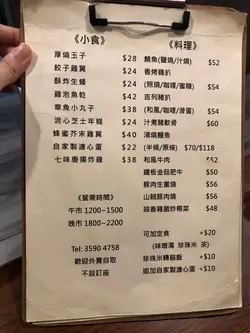 《小食》
厚燒玉子 $28
餃子雞翼 $24
酥炸生蠔 $38
雞泡魚乾 $42
章魚小丸子 $38
流心芝士年糕 $30
蜂蜜芥末雞翼 $40
自家製溏心蛋 $22
七味唐揚炸雞 $38
《營業時間》
午市 1200~1500
晚市 1800~2200
Tel: 3590 4758
歡迎外賣自取
不設訂座
《料理》
鯖魚(鹽燒/汁燒) $52
香烤雞扒
(照燒/咖喱/蜜糖) $54
吉列豬扒
(和風/咖喱/滑蛋) $54
汁煮豬軟骨 $60
浦燒鰻魚
(半條/原條) $70/$118
和風牛肉 $52
鐵板金菇肥牛 $50
豚肉生薑燒 $56
山賊豚肉燒 $56
蒜香雞菌炒椰菜 $48
可加定食 +$20
(味噌湯 珍珠米 茶)
珍珠米轉扇飯 +$10
追加自家製溏心蛋 +$10